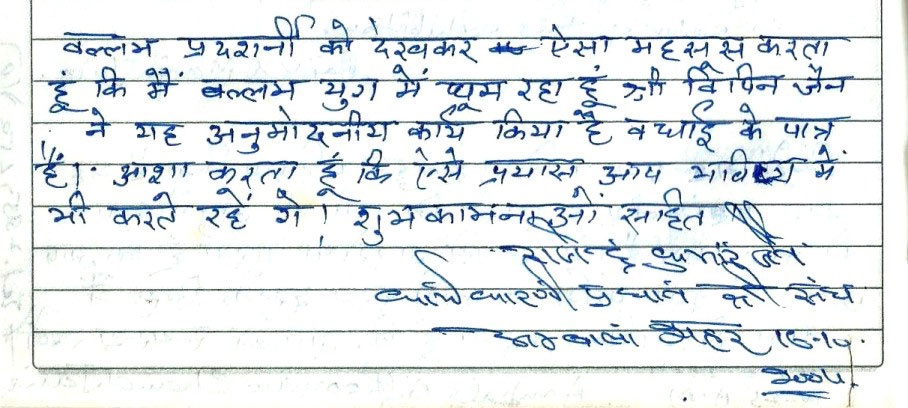 वल्लभ प्रदर्शनी को देखकर ऐसा महसूस करता
हूं कि मैं वल्लभ युग में घूम रहा हूं श्री विपिन जैन
ने यह अनुमोदनीय कार्य किया है बधाई के पात्र
हैं। आशा करता हूं कि ऐसे प्रयास आप भविष्य में
भी करते रहें गे। शुभकामनाओं सहित
कुमार जैन
प्रधान श्री संघ
अम्बाला शहर 16-10.